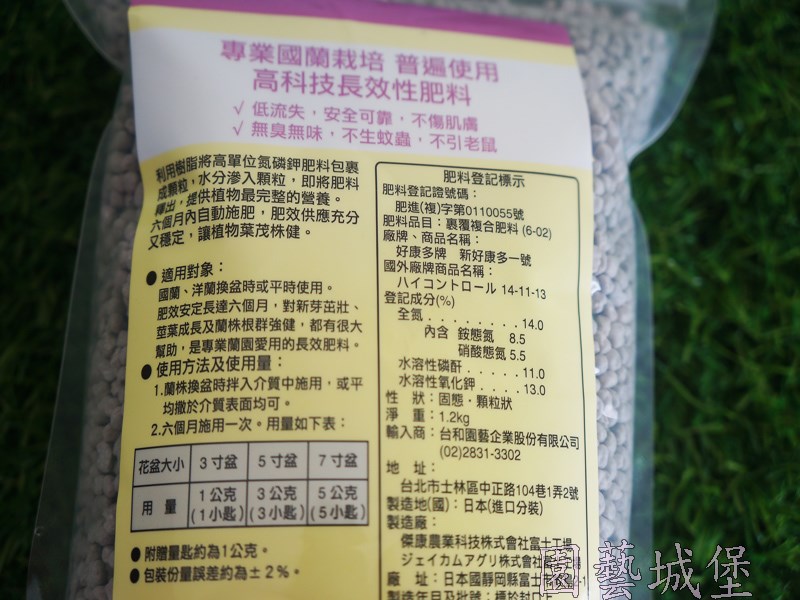 專業國蘭栽培 普遍使用
高科技長效性肥料
√ 低流失，安全可靠，不傷肌膚
√ 無臭無味，不生蚊蟲，不引老鼠
利用樹脂將高單位氮磷鉀肥料包裹
成顆粒，水分滲入顆粒，即將肥料
釋出，提供植物最完整的營養。
六個月內自動施肥，肥效供應充分
又穩定，讓植物葉茂株健。
● 適用對象：
國蘭、洋蘭換盆時或平時使用。
肥效安定長達六個月，對新芽茁壯、
莖葉成長及蘭株根群強健，都有很大
幫助，是專業蘭園愛用的長效肥料。
● 使用方法及使用量：
1.蘭株換盆時拌入介質中施用，或平
均撒於介質表面均可。
2.六個月施用一次。用量如下表：
花盆大小 3寸盆 5寸盆 7寸盆
用 量 1公克 3公克 5公克
(1小匙) (3小匙) (5小匙)
● 附贈量匙約為1公克。
● 包裝份量誤差約為±2%。
肥料登記標示
肥料登記證號碼：
肥進(複)字第0110055號
肥料品目：裹覆複合肥料 (6-02)
廠牌、商品名稱：
好康多牌 新好康多一號
國外廠牌商品名稱：
ハイコントロール 14-11-13
登記成分(%)
全氮 . . . . . . . . 14.0
內含 銨態氮 8.5
硝酸態氮 5.5
水溶性磷酐 . . . . . 11.0
水溶性氧化鉀 . . . . 13.0
性 狀：固態・顆粒狀
淨 重：1.2kg
輸入商：台和園藝企業股份有限公司
(02)2831-3302
地 址：
台北市士林區中正路104巷1弄2號
製造地(國)：日本(進口分裝)
製造廠：
傑康農業科技株式會社富士工場
ジェイカムアグリ株式會社
廠 址：日本國靜岡縣富士
製造年月及批號：標於封口上
園藝城堡